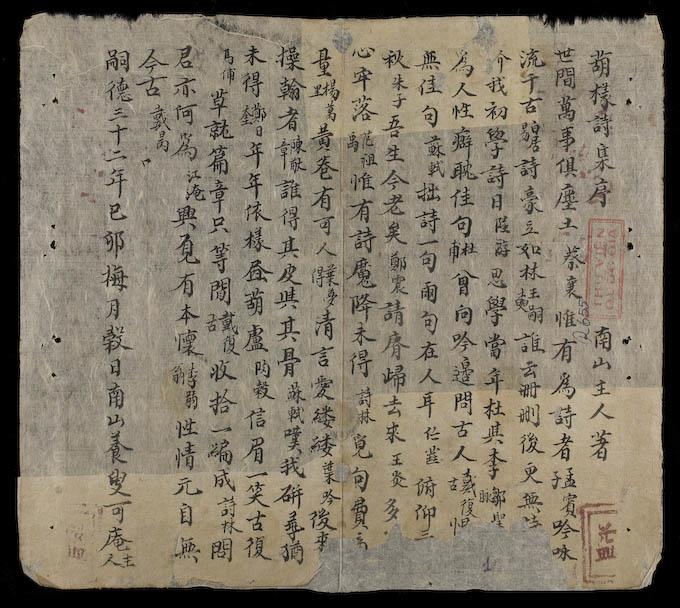 葫様詩集序 南山主人著
世間萬事俱塵土 蔡襄 惟有為詩者 孟賓子 吟咏
流千古 詩豪立如林 王嗣奭 誰云冊刪後更無
介 我初學詩日 陸游 思學當年杜與李 鄒聖脉
為人性癖耽佳句 杜甫 曾向吟邊問古人 戴復古 怛
無佳句 蘇軾 拙詩一句兩句在人耳 俯仰三
秋 朱子 吾生今老矣 鄭震 請賡歸去來 王炎 多
心牢落 范祖禹 惟有詩魔降未得 詩林 覓句費
量 楊萬里 黄卷有可人 葉夢得 清言愛縷縷 葉吟 後來
操翰者 陳獻章 誰得其皮與其骨 蘇軾 嘆我研尋猶
未得 鄭曰奎 年年依樣昼葫盧 陶穀 信眉一笑古復
馬甫 草就篇章只等閒 戴復古 收拾一編成 詩林 問
君亦何為 江淹 興覓有本懷 性情元自無
今古 戴昺
嗣德三十二年己卯梅月穀日南山養叟可庵主人
2655